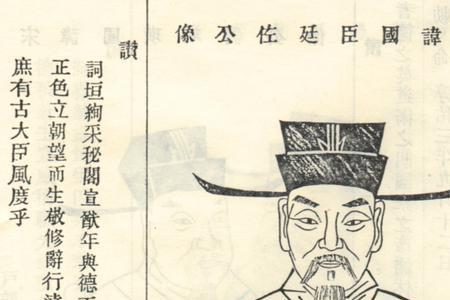 諱國臣廷佐公像
讚
詞垣絢采秘閣宣猷年與德
正色立朝望而生敬修辭行
庶有古大臣風度乎